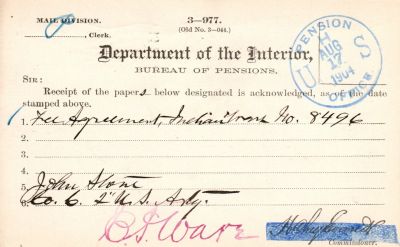 MAIL DIVISION.
3—977.
(Old No. 3—044.)
, Clerk.
Department of the Interior,
BUREAU OF PENSIONS.
U S PENSION OFFICE
AUG
17
1904
SIR:
Receipt of the papers below designated is acknowledged, as of the date
stamped above.
1. Fee Agreement, Indian War No. 8496
2.
3.
4.
5. John Stone
6. Co. C. 2" U.S. Arty.
C. S. Ware
Commissioner.